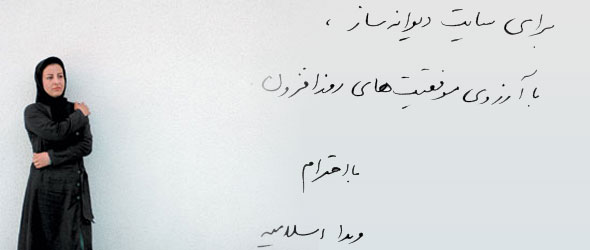 برای سایت دیوانه‌ساز ،
با آرزوی موفقیت‌های روزافزون
با احترام
ویدا اسلامیه